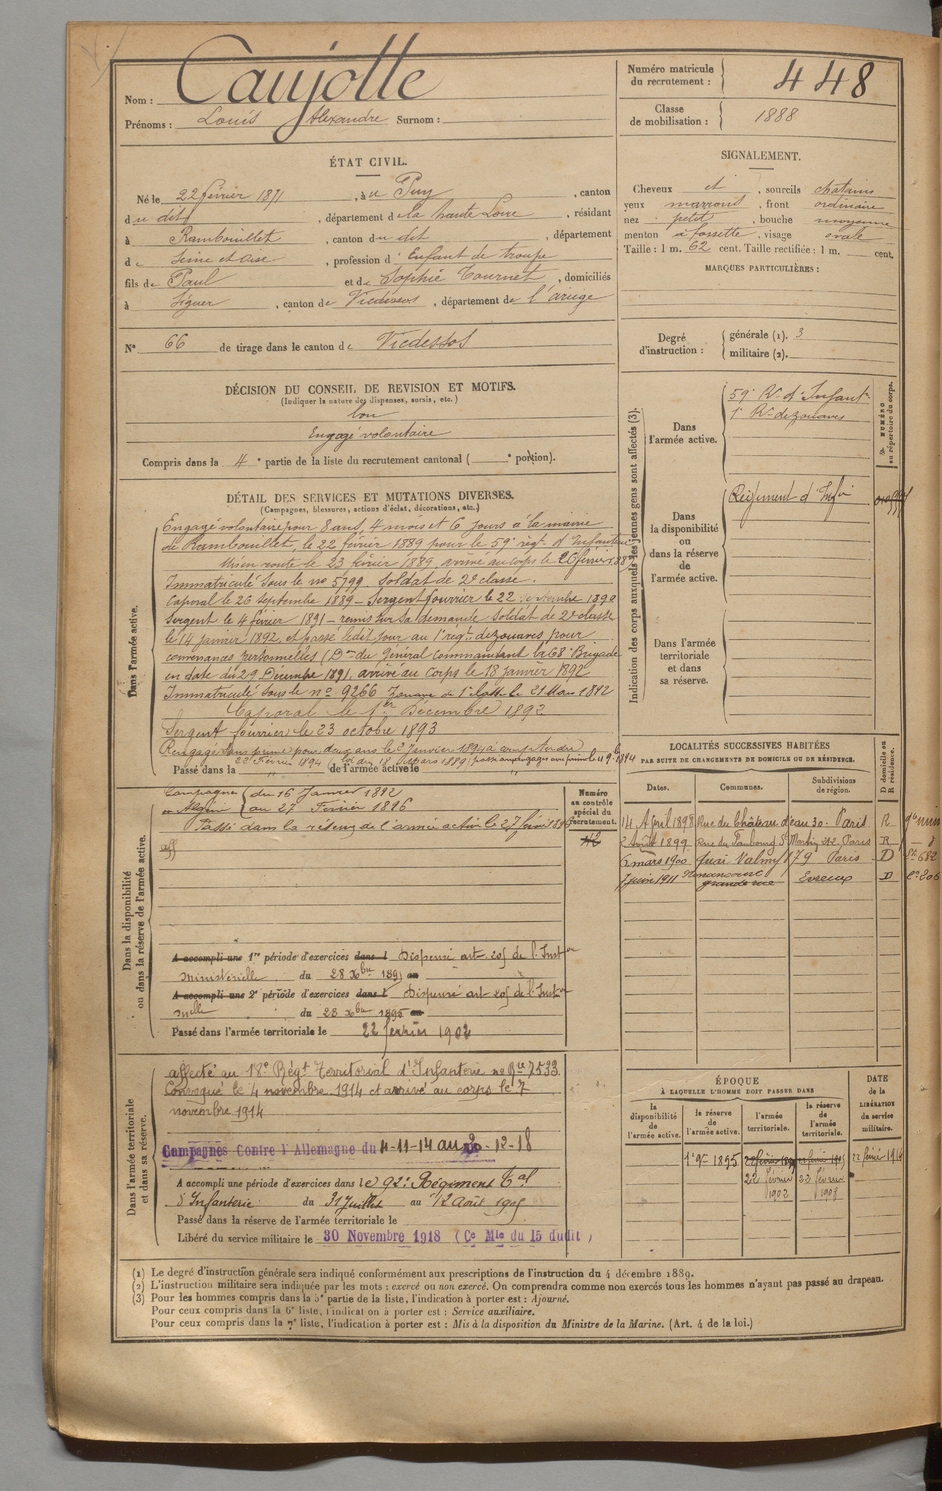 Nom : Caujolle
Prénoms : Louis Alexandre Surnom :
Numéro matricule du recrutement : 448
Classe de mobilisation : 1888
ÉTAT CIVIL.
Né le 22 février 1871, à u Puy, canton
du dit, département de la haute Loire, résidant
à Rambouillet, canton du dit, département
de Seine et Oise, profession d'Enfant de troupe
fils de Paul et de Sophie Tournet, domiciliés
à Siguer, canton de Vicdessos, département de l'ariège
N° 66 de tirage dans le canton de Vicdessos
SIGNALEMENT.
Cheveux et, sourcils chatains
yeux marrons, front ordinaire
nez petit, bouche moyenne
menton à fossette, visage ovale
Taille : 1 m. 62 cent. Taille rectifiée : 1 m. cent.
MARQUES PARTICULIÈRES :
Degré d'instruction : générale (1). 3
militaire (2).
DÉCISION DU CONSEIL DE REVISION ET MOTIFS.
(Indiquer la nature des dispenses, sursis, etc.)
bon
Engagé volontaire
Compris dans la 4e partie de la liste du recrutement cantonal ( e portion).
DÉTAIL DES SERVICES ET MUTATIONS DIVERSES.
(Campagnes, blessures, actions d'éclat, décorations, etc.)
Dans l'armée active.
Engagé volontaire pour 8 ans, 4 mois et 6 jours à la mairie
de Rambouillet, le 22 février 1889 pour le 59e régt d'Infanterie
Mis en route le 23 février 1889, arrivé au corps le 26 février 1889
Immatriculé sous le no 5799. Soldat de 2e classe.
Caporal le 26 septembre 1889 – Sergent fourrier le 22 1890
Sergent le 4 février 1891 – remis sur sa demande Soldat de 2e classe
le 14 janvier 1892, et passé ledit jour au 1er régt de zouaves pour
convenances personnelles (Don du Général Commandant la 68e Brigade
en date du 29 Décembre 1891, arrivé au corps le 18 janvier 1892
Immatriculé sous le no 9266 Zouave de 1e classe le 21 Mars 1892
Caporal le 1er Décembre 1892
Sergent fourrier le 23 octobre 1893
Rengagé sans prime pour deux ans le 2 Janvier 1894 à compter du
22 Février 1894 (loi du 18 Mars 1889)
Passé dans la de l'armée active le
Dans la disponibilité ou dans la réserve de l'armée active.
Campagnes en Algérie { du 16 Janvier 1892
au 27 Février 1896
Passé dans la réserve de l'armée active le 27 février 1896
Numéro au contrôle spécial du recrutement.
A accompli une 1re période d'exercices dans l Dispensé art. 205 de l'Inston
ministérielle du 28 Xbre 1895 au
A accompli une 2e période d'exercices dans l Dispensé art 205 de l'Inston
mielle du 28 Xbre 1895 au
Passé dans l'armée territoriale le 22 février 1902
Dans l'armée territoriale et dans sa réserve.
affecté au 18e Régt Territorial d'Infanterie no 7533.
Convoqué le 4 novembre 1914 et arrivé au corps le 7
novembre 1914
Campagnes Contre l'Allemagne du 4-11-14 au 2-12-18
A accompli une période d'exercices dans le 92e Régiment Tal
d'Infanterie du 31 Juillet au 12 Août 1905
Passé dans la réserve de l'armée territoriale le
Libéré du service militaire le 30 Novembre 1918 (Ce Mle du 15 dudit)
Indication des corps auxquels les jeunes gens sont affectés (3).
NUMÉRO au répertoire du corps.
Dans l'armée active.
59e Rt d'Infant.
1er Rt de zouaves
Dans la disponibilité ou dans la réserve de l'armée active.
Régiment d'Infie
Dans l'armée territoriale et dans sa réserve.
LOCALITÉS SUCCESSIVES HABITÉES
PAR SUITE DE CHANGEMENTS DE DOMICILE OU DE RÉSIDENCE.
D domicile ou R résidence.
Dates. Communes. Subdivisions de région.
14 April 1898 Rue du Château d'eau 30 - Paris R
2 août 1899 Rue du Faubourg St Martin 212 Paris R
5 mars 1900 Quai Valmy 179 Paris D
7 juin 1911 grande rue Evreux D
ÉPOQUE
À LAQUELLE L'HOMME DOIT PASSER DANS
DATE de la LIBÉRATION du service militaire.
la disponibilité de l'armée active.
la réserve de l'armée active.
l'armée territoriale.
la réserve de l'armée territoriale.
1895
22 février 1902
22 février 1908
22 février 1914
(1) Le degré d'instruction générale sera indiqué conformément aux prescriptions de l'instruction du 4 décembre 1889.
(2) L'instruction militaire sera indiquée par les mots : exercé ou non exercé. On comprendra comme non exercés tous les hommes n'ayant pas passé au drapeau.
(3) Pour les hommes compris dans la 5e partie de la liste, l'indication à porter est : Ajourné.
Pour ceux compris dans la 6e liste, l'indication à porter est : Service auxiliaire.
Pour ceux compris dans la 7e liste, l'indication à porter est : Mis à la disposition du Ministre de la Marine. (Art. 4 de la loi.)